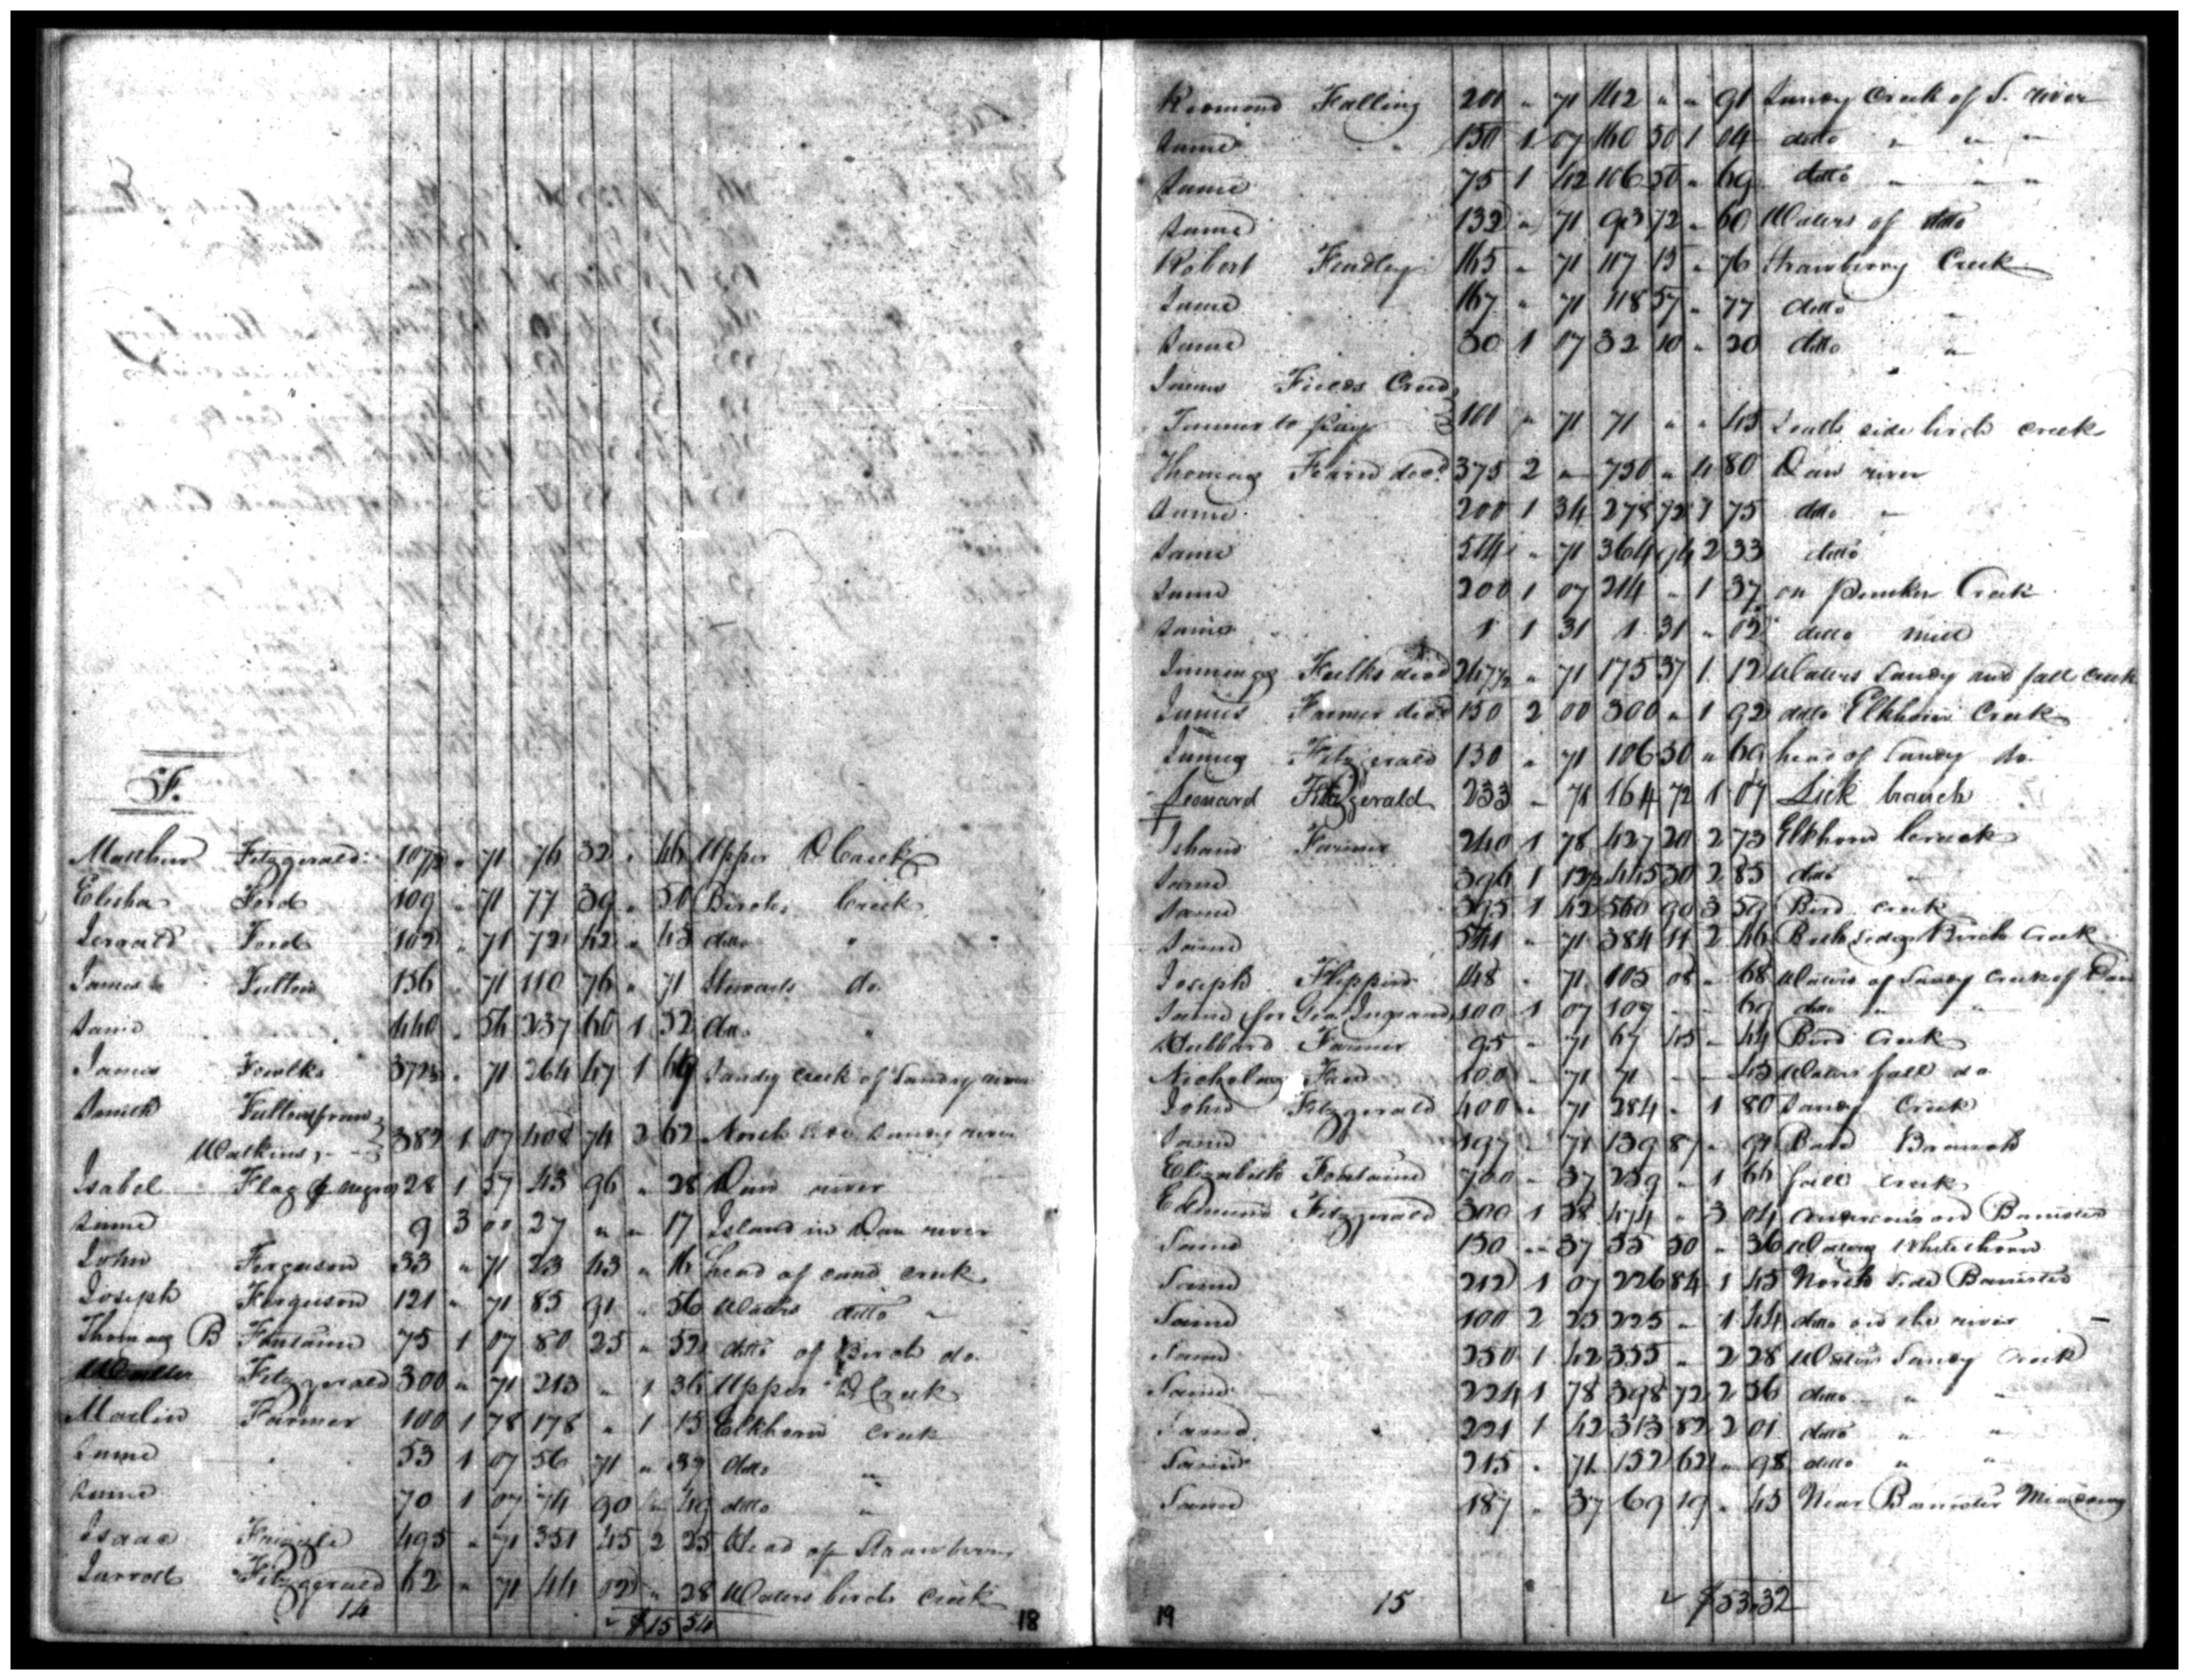 F.
Matthew Fitzgerald 107½ " 71 76 32 " 46 Upper D Creek
Elisha Ford 109 " 71 77 39 " 50 Birch Creek
Ford 102 " 71 72 42 " 45 ditto "
James Fulton 156 " 71 110 76 " 71 Stewarts do
Same 440 " 54 237 60 1 52 ditto "
James Foulks 372½ " 71 264 47 1 69 Sandy creek of Sandy river
Fulton from
Watkins 382 1 07 408 74 2 62 North side Sandy river
Isabel Flag negro 28 1 57 43 96 " 28 Dan river
Same 9 3 00 27 " " 17 Island in Dan river
John Ferguson 33 " 71 23 43 " 16 head of cane creek
Joseph Ferguson 121 " 71 85 91 " 56 Waters ditto "
Thomas B Fontaine 75 1 07 80 25 " 52 ditto of Birch do
Fitzgerald 300 " 71 213 " 1 36 Upper D Creek
Farmer 100 1 78 178 " 1 15 Elkhorn creek
Same 53 1 07 56 71 " 37 ditto "
Same 70 1 07 74 90 " 49 ditto "
Isaac 495 " 71 351 45 2 25 Head of Strawberry
Jarrott Fitzgerald 62 " 71 44 02 " 28 Waters birch creek
14 $15 54 18
Falling 200 " 71 142 " " 91 Sandy Creek of S. river
Same " 150 1 07 160 50 1 04 ditto " " "
Same 75 1 42 106 50 " 69 ditto " " "
Same 132 " 71 93 72 " 60 Waters of ditto
Robert Findley 165 " 71 117 15 " 76 Strawberry Creek
Same 167 " 71 118 57 " 77 ditto "
Same 30 1 07 32 10 " 20 ditto "
James Fields
to pay 100 " 71 71 " " 45 South side birch creek
Thomas Fearn decd. 375 2 " 750 " 4 80 Dan river
Same 200 1 34 278 72 1 75 ditto "
Same 514 " 71 364 94 2 33 ditto
Same 200 1 07 214 " 1 37 on Creek
Same 1 1 31 1 31 " 02 ditto mill
Jennings Fulks decd 247½ " 71 175 37 1 12 Waters Sandy and fall creek
James Farmer decd 150 2 00 300 " 1 92 ditto Elkhorn Creek
James Fitzgerald 150 " 71 106 50 " 69 head of Sandy do
Leonard Fitzgerald 233 " 71 164 72 1 07 Lick branch
Isham Farmer 240 1 78 427 20 2 73 Elkhorn Creek
Same 396 1 445 50 2 85 ditto "
Same 395 1 42 560 90 3 59 Bird creek
Same 541 " 71 384 11 2 46 Both sides Birch Creek
Joseph Flippin 148 " 71 105 08 " 68 Waters of Sandy Creek of Dan
Same for Geo 100 1 07 107 " " 69 ditto " "
Hubbard Farmer 95 " 71 67 45 " 44 Bird Creek
Nicholas 100 " 71 71 " " 45 Waters fall do
John Fitzgerald 400 " 71 284 " 1 80 Sandy Creek
Same 197 " 71 139 87 " 91 Branch
Elizabeth Fontaine 700 " 37 259 " 1 66 fall creek
Edmund Fitzgerald 300 1 58 474 " 3 04 on Banister
Same 150 " 37 55 50 " 36 Waters Whitethorn
Same 212 1 07 226 84 1 45 North side Banister
Same 100 2 25 225 " 1 44 ditto on the river
Same 250 1 42 355 " 2 28 Waters Sandy Creek
Same 224 1 78 398 72 2 56 ditto " "
Same 221 1 42 313 82 2 01 ditto " "
Same 215 " 71 152 62 " 98 ditto " "
Same 187 " 37 69 19 " 45 Near Banister Meadows
19 15 $53.32